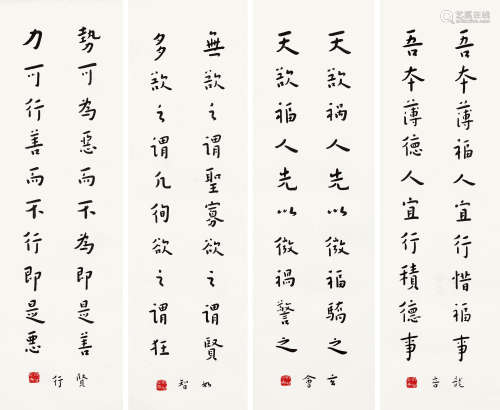 吾本薄福人宜行惜福事
吾本薄德人宜行積德事
天欲禍人先以微福驕之
天欲福人先以微禍警之
無欲之謂聖寡欲之謂賢
多欲之謂凡徇欲之謂狂
勢可為惡而不為即是善
力可行善而不行即是惡